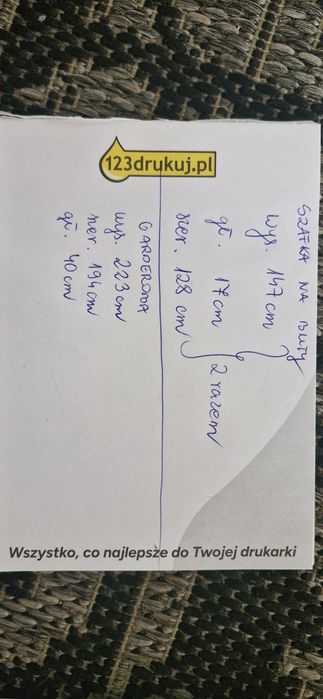 123drukuj.pl
SZAFKA NA BUTY
wys. 147 cm
gł. 17 cm
szer. 128 cm
2 razem
GARDEROBA
wys. 223 cm
szer. 194 cm
gł. 40 cm
Wszystko, co najlepsze do Twojej drukarki